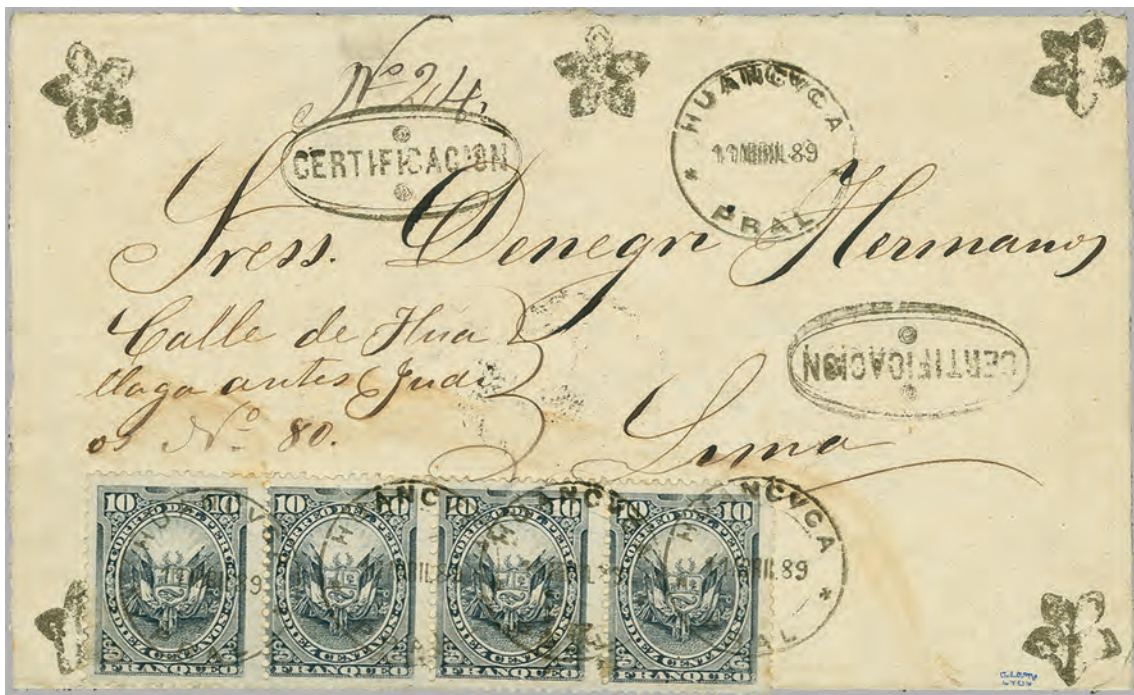 Nº 24.
CERTIFICACION
HUANCVCA
11 ABRIL 89
PRAL
Sres. Denegri Hermanos
Calle de Hua
llaga antes Judi
os Nº 80.
CERTIFICACION
Lima
10 10
CORREO DEL PERU
DIEZ CENTAVOS
FRANQUEO
10 10
CORREO DEL PERU
DIEZ CENTAVOS
FRANQUEO
10 10
CORREO DEL PERU
DIEZ CENTAVOS
FRANQUEO
10 10
CORREO DEL PERU
DIEZ CENTAVOS
FRANQUEO
HUANCVCA
ABRIL 89
PRAL